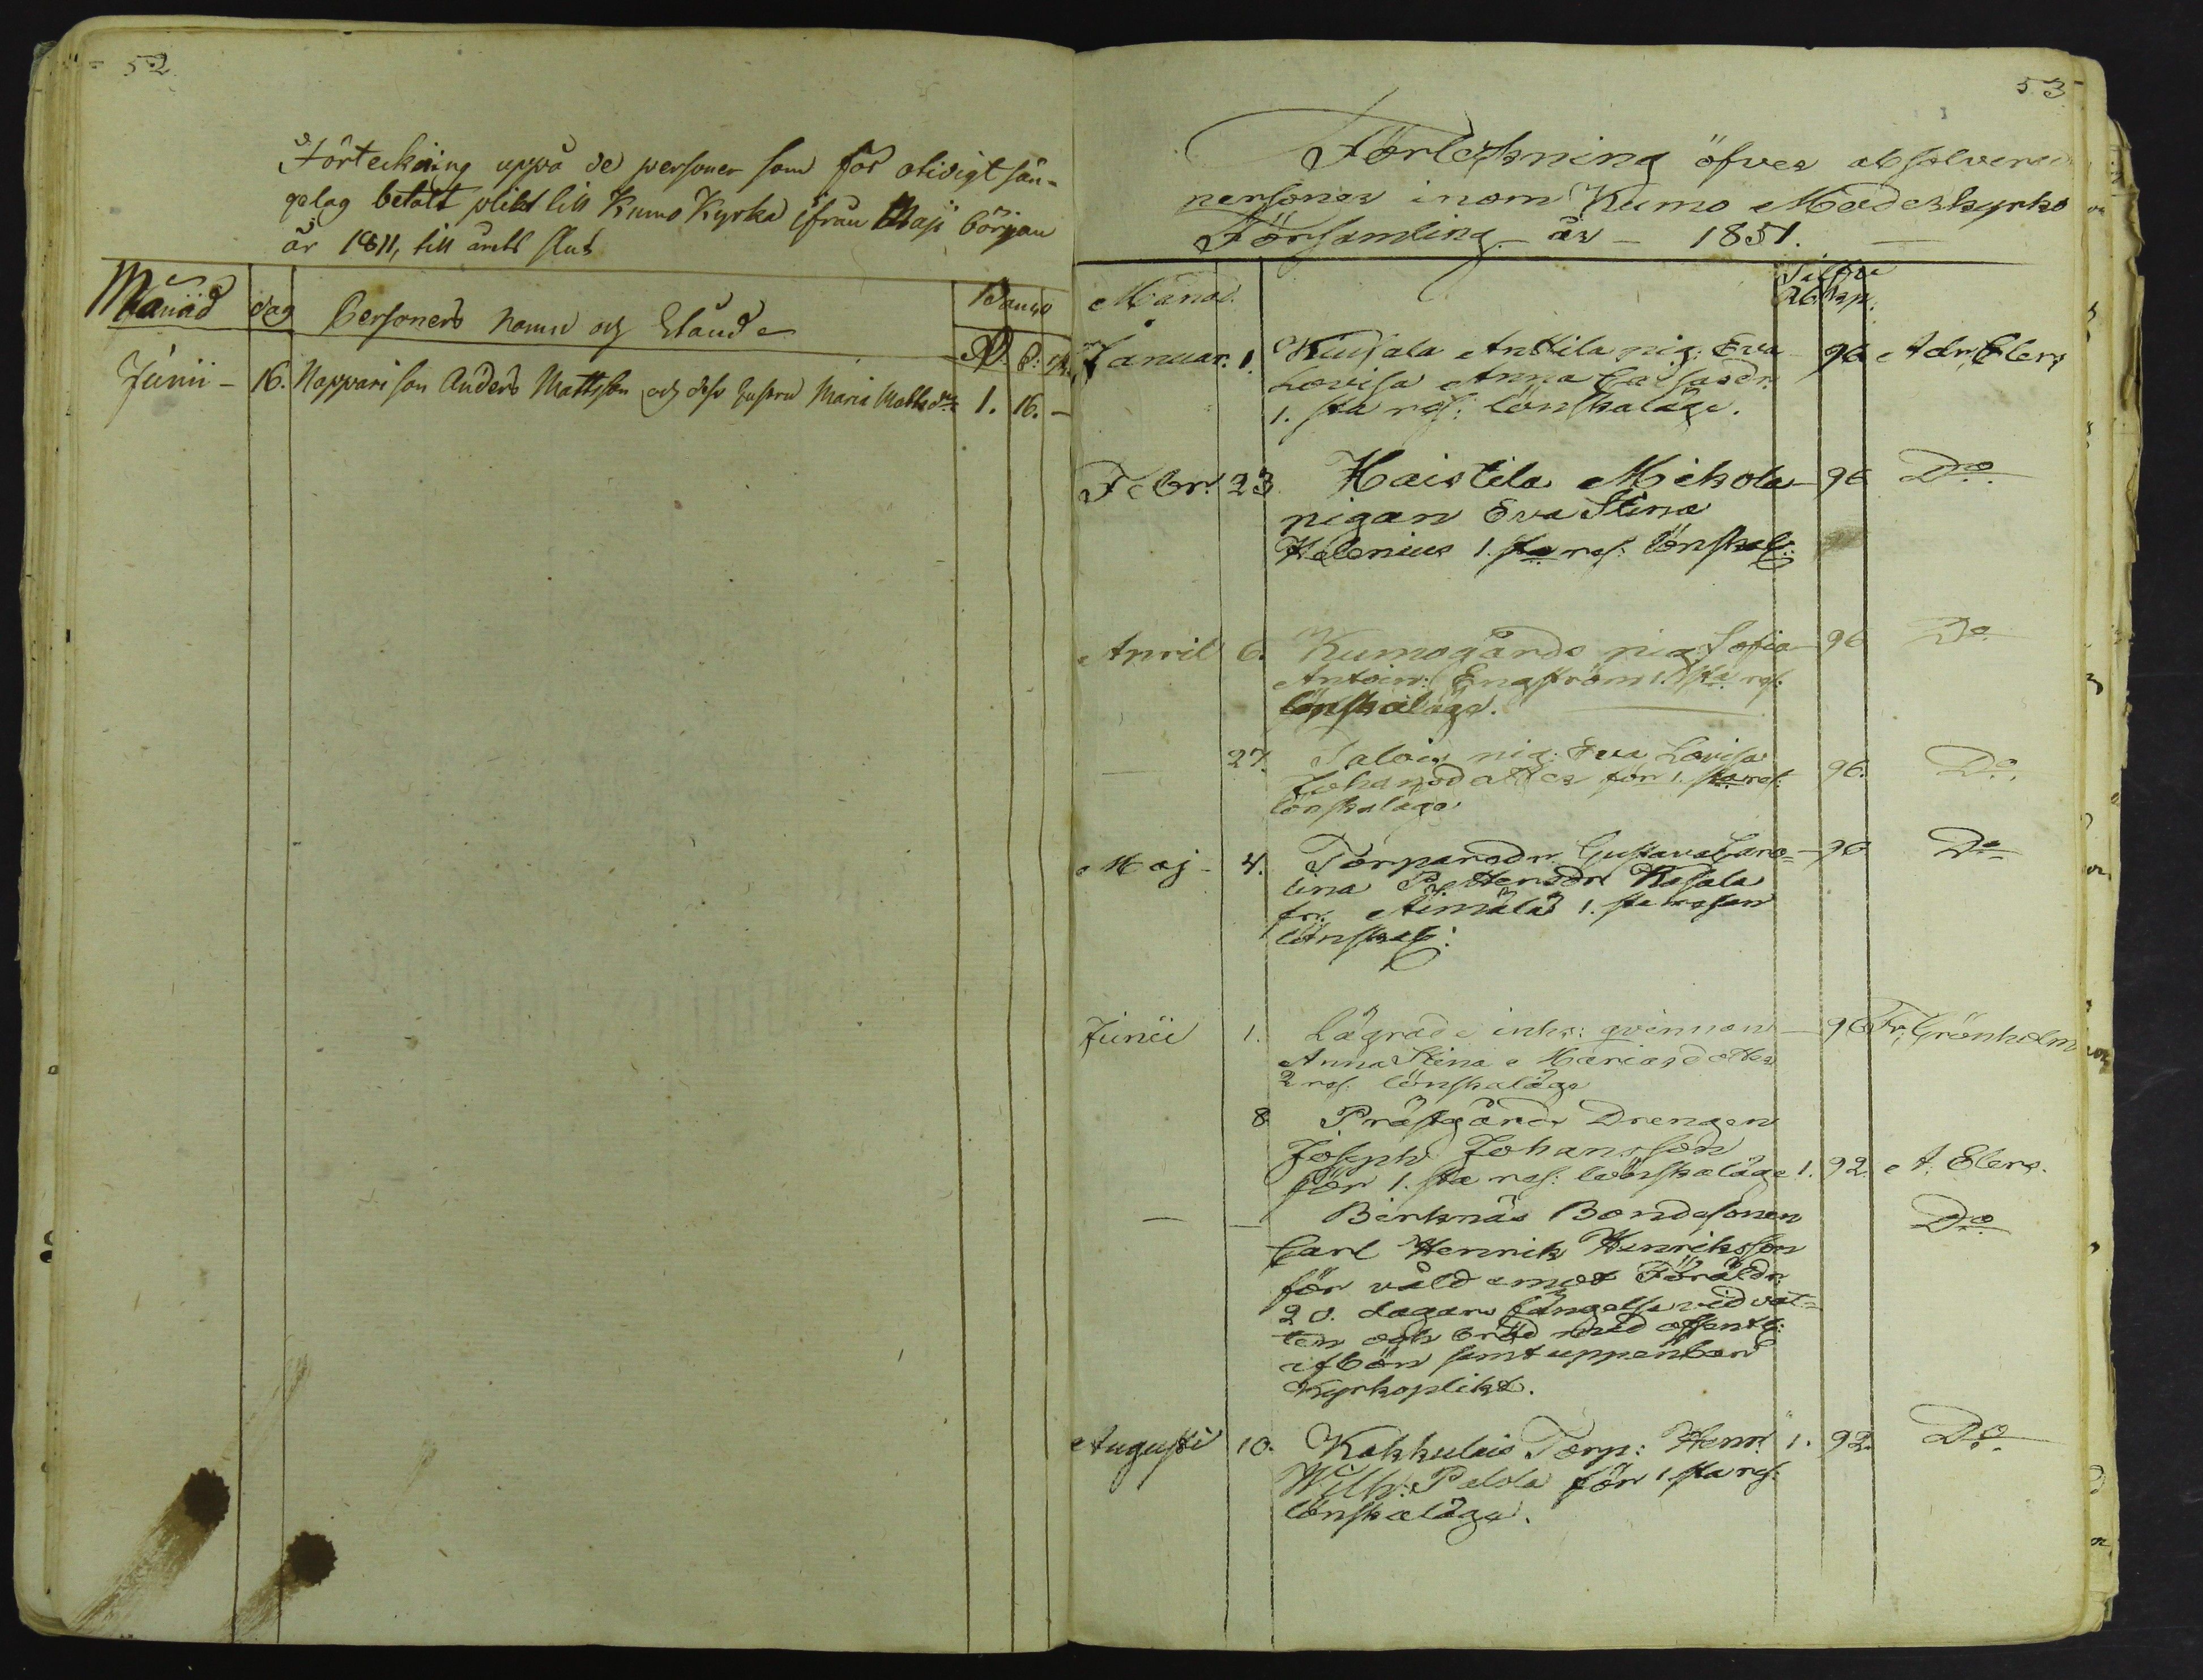 52
Förteckning uppå de personer som för otidigt sän-
gelag betalt plikt till Kumo Kyrka ifrån Maji början
år 1811, till årets slut
Månad dag Personers namn och Stånd Banco
R. s: r.
Junii - 16. Nappari son Anders Mattsson och dess hustru Maria Mattsdr 1. 16. -
53
Förteckning öfver absolverade
personer inom Kumo Moderkyrko
Församling år 1851.
Månad. Silfver
Rb. kp.
Januar. 1. Kuusala Anttila pig: Eva 96 Adr. Elers
Lovisa Anna Caisasdr.
1. sta rgs: lönskaläge.
Febr. 23. Haistila Mikola 96 Do.
pigan Eva Stina
Helenius 1. sta rgs: lönskal:
April 6. Kumogårds pig. Sofia 96 Do.
Antoin: Engström 1. sta rgs:
lönskaläge.
- 27. Talois pig: Eva Lovisa
Johansdotter för 1. sta rgs: 96. Do.
lönskaläge.
Maj - 4. Torparedr. Gustava Caro- 96 Do.
lina P. Hensdr Kasala
fr. Äimälä 1. sta resan
lönskal:
Junii 1. Lägrade inhs: qvinnan 96 Fr. Grönholm
Anna Stina Mariasdotter
2 rgs. lönskaläge
8 Prästgårds Drengen
Joseph Johansson
för 1. sta rgs: lönskaläge 1. 92. A. Elers.
- - Birknäs Bondesonen Do.
Carl Henrik Henriksson
för våld emot Föräldr:
20. dagars fängelse vid vat-
ten och bröd med offentl:
afbön samt uppenbar
Kyrkoplikt.
Augusti 10. Kakkulais Torp: Henr. 1. 92. Do.
Wilh: Palola för 1 sta rgs:
lönskaläge.